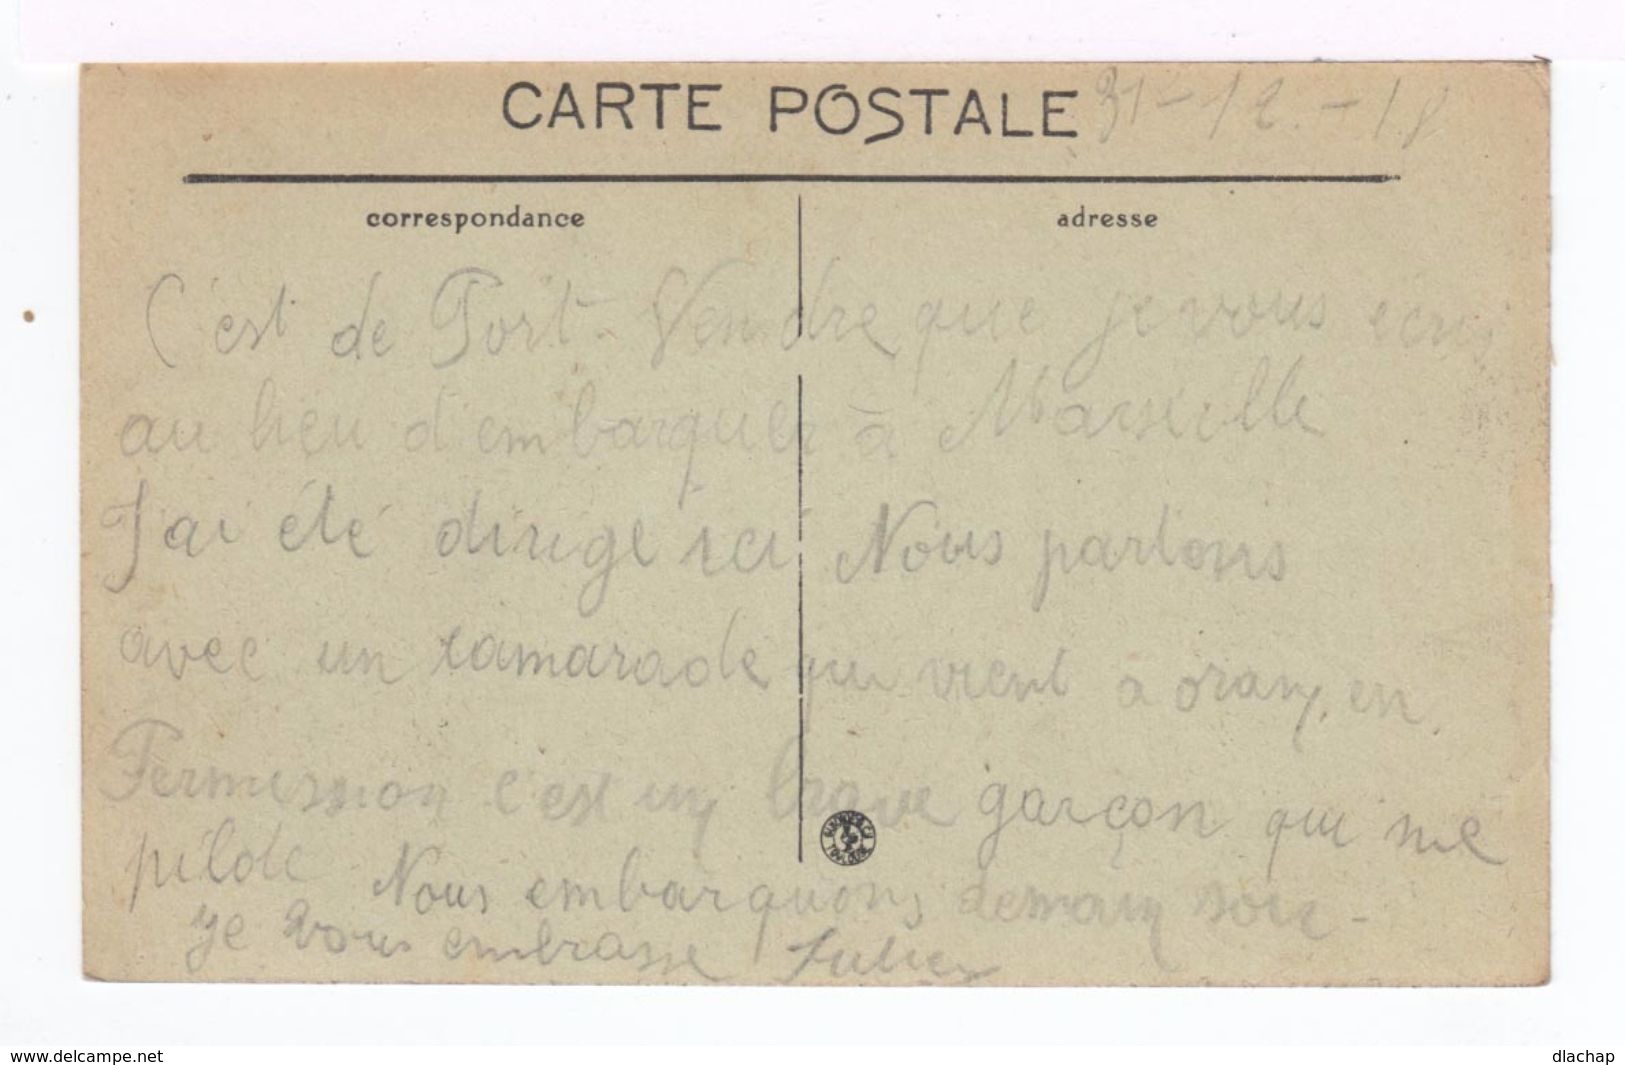 CARTE POSTALE 31-12.-18
correspondance
adresse
C'est de Port-Vendre que je vous ecris
au lieu d'embarquer à Marseille
J'ai été dirige ici Nous partons
avec un camarade qui vient à oran, en
Permission c'est un brave garçon qui me
pilote Nous embarquons demain soir -
je vous embrasse Julien
TOULOUSE
www.delcampe.net
dlachap